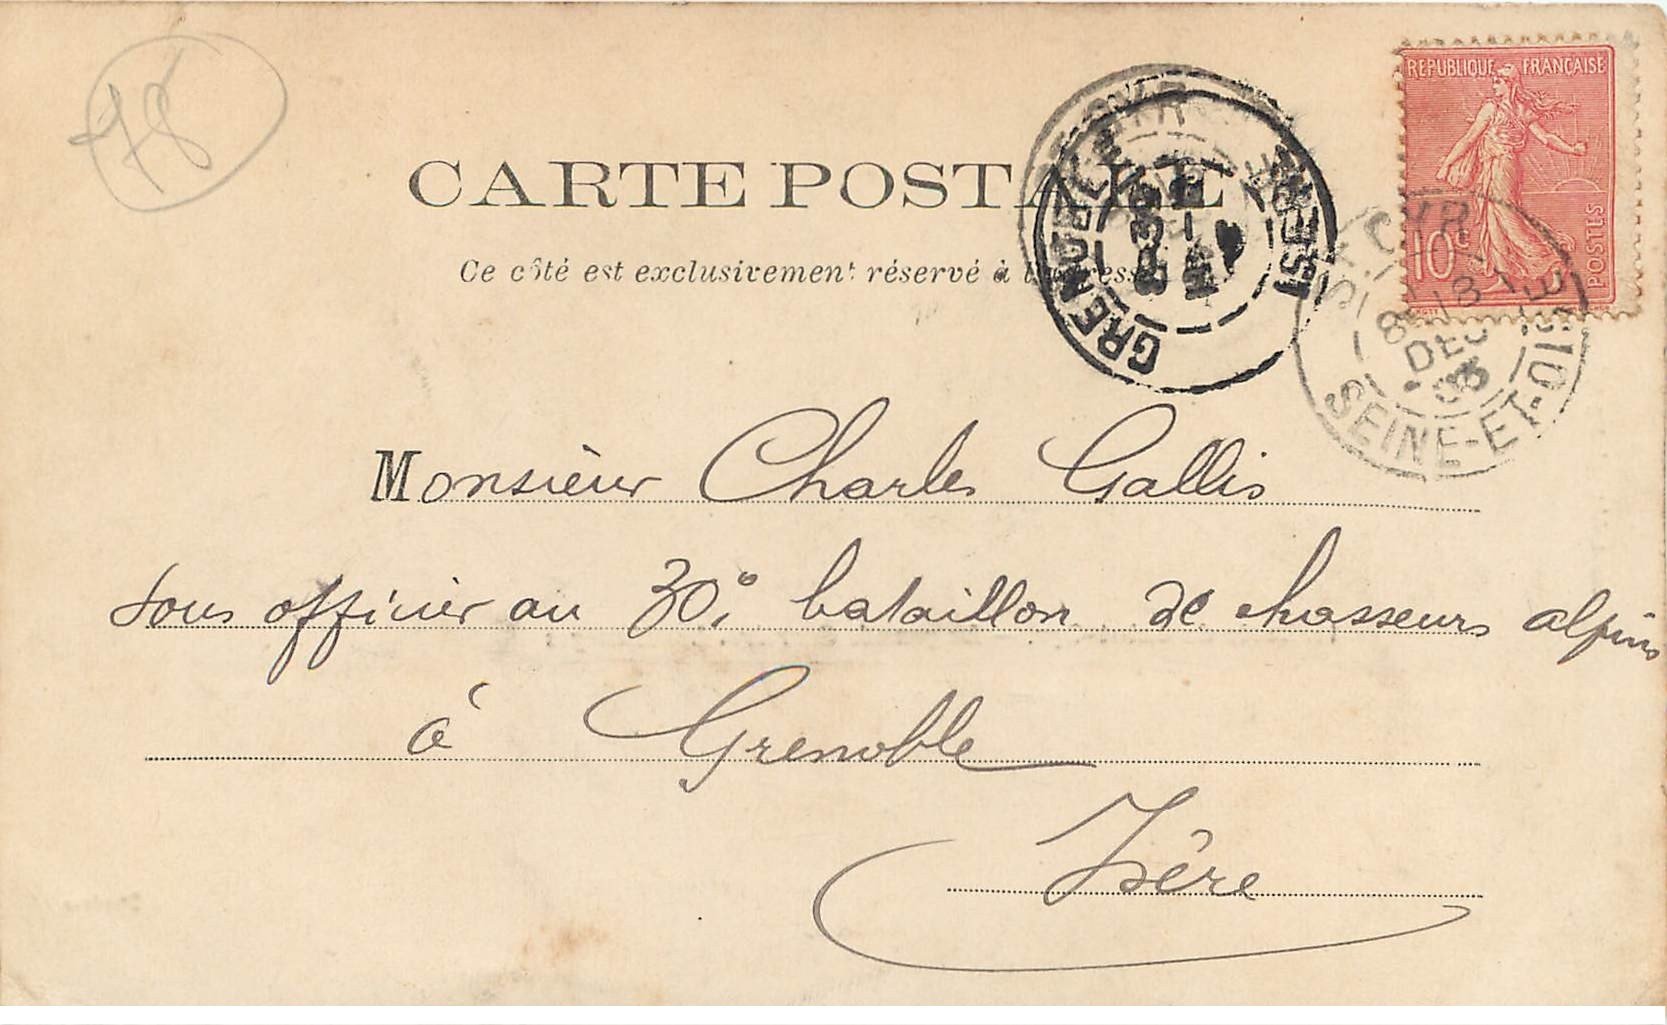 78
CARTE POSTALE
Ce côté est exclusivement réservé à l'adresse
REPUBLIQUE FRANÇAISE
10c
POSTES
GRENOBLE
ISERE
ST CYR
8
DEC
03
SEINE-ET-OISE
Monsieur Charles Gallis
sous officier au 30e bataillon de chasseurs alpins
à Grenoble
Isère